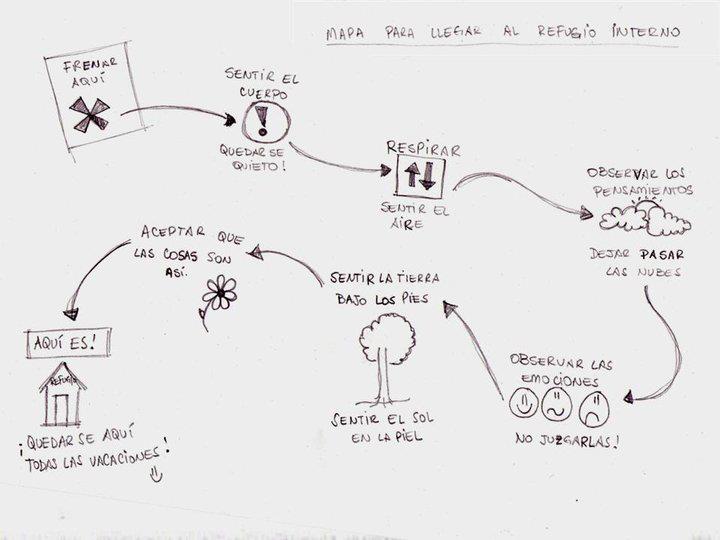 MAPA PARA LLEGAR AL REFUGIO INTERNO
FRENAR
AQUÍ
SENTIR EL
CUERPO
!
QUEDARSE
QUIETO!
RESPIRAR
SENTIR EL
AIRE
OBSERVAR LOS
PENSAMIENTOS
DEJAR PASAR
LAS NUBES
OBSERVAR LAS
EMOCIONES
NO JUZGARLAS!
SENTIR LA TIERRA
BAJO LOS PIES
SENTIR EL SOL
EN LA PIEL
ACEPTAR QUE
LAS COSAS SON
ASÍ.
AQUÍ ES!
REFUGIO
¡QUEDARSE AQUÍ
TODAS LAS VACACIONES!